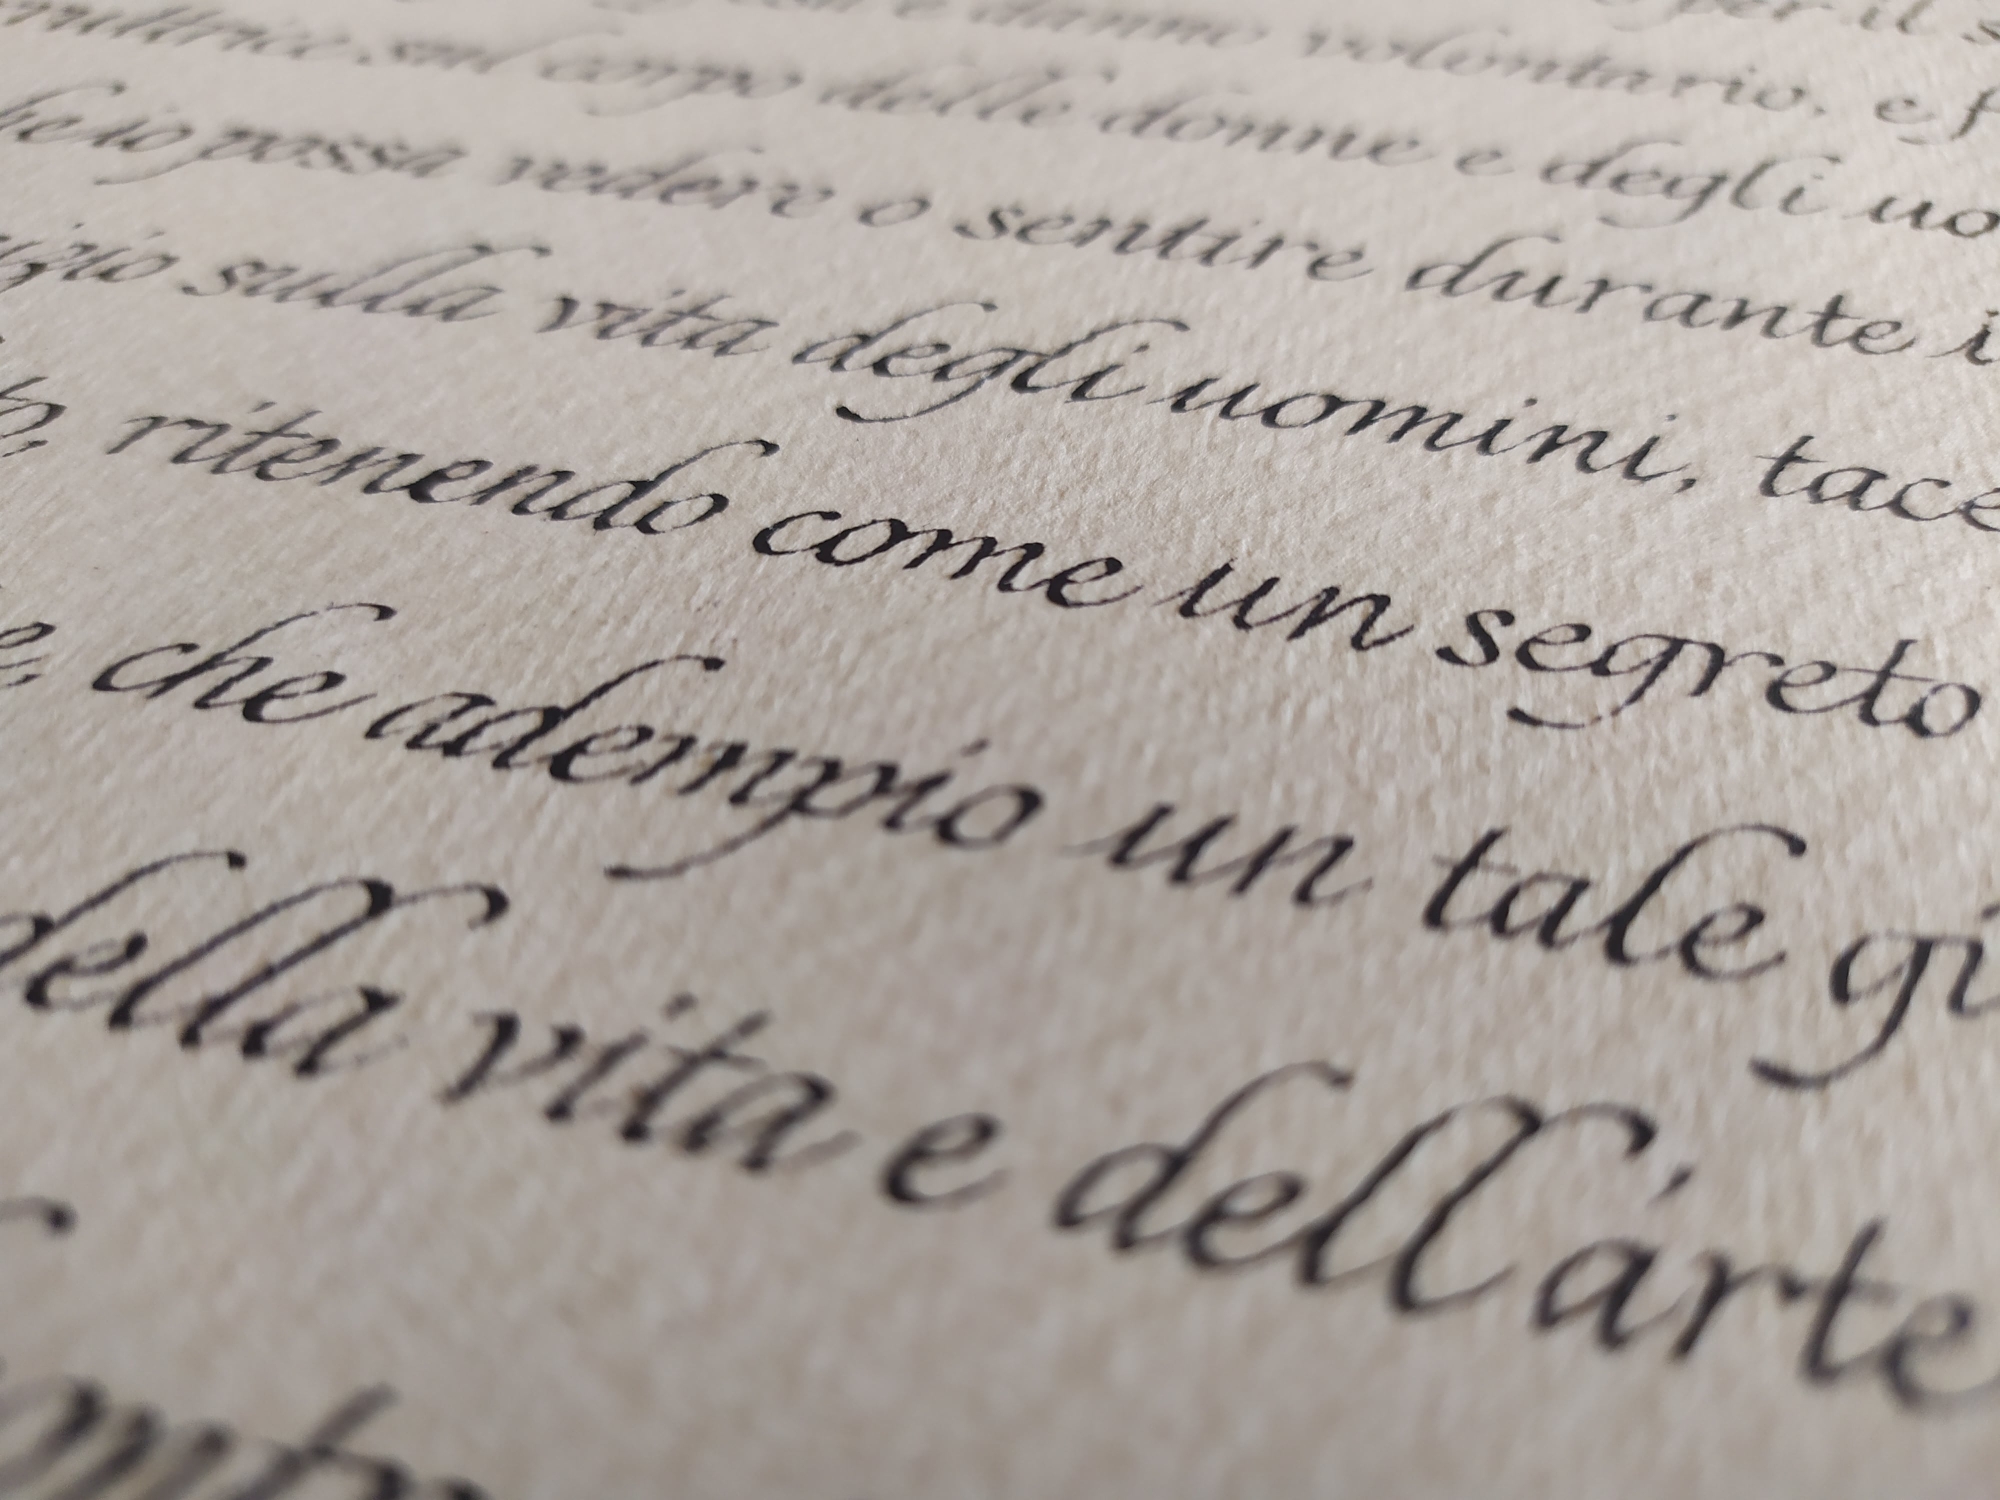 e danno volontario, e f
sul corpo delle donne e degli uo
he io possa vedere o sentire durante i
izio sulla vita degli uomini, tace
to, ritenendo come un segreto
e, che adempio un tale gi
della vita e dell'arte